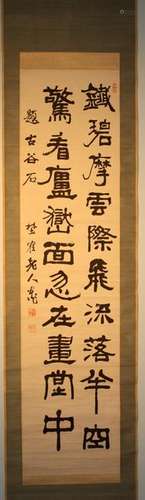 鐵碧摩雲際飛流落半空
驚看廬嶽面忽在畫堂中
題古谷石
老人